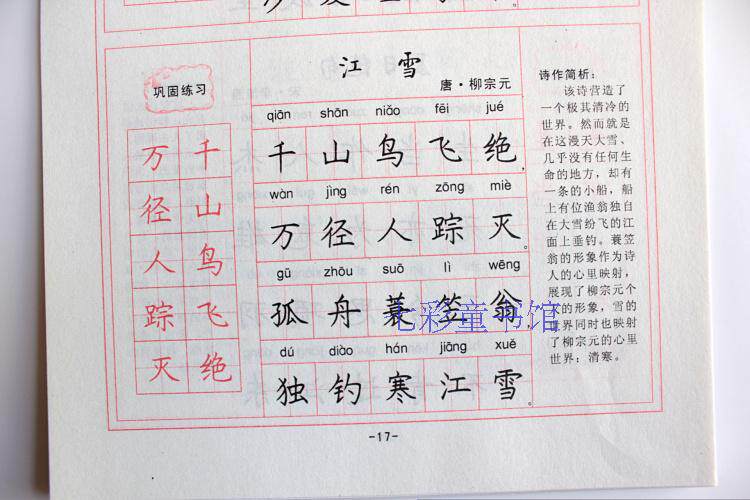 巩固练习
千山鸟飞绝
万径人踪灭
江雪
唐·柳宗元
qiān shān niǎo fēi jué
千山鸟飞绝，
wàn jìng rén zōng miè
万径人踪灭。
gū zhōu suō lì wēng
孤舟蓑笠翁，
dú diào hán jiāng xuě
独钓寒江雪。
诗作简析：
该诗营造了
一个极其清冷的
世界。然而就是
在这漫天大雪、
几乎没有任何生
命的地方，却有
一条的小船，船
上有位渔翁独自
在大雪纷飞的江
面上垂钓。蓑笠
翁的形象作为诗
人的心里映射，
展现了柳宗元个
的形象，雪的
世界同时也映射
了柳宗元的心里
世界：清寒。
七彩童书馆
-17-